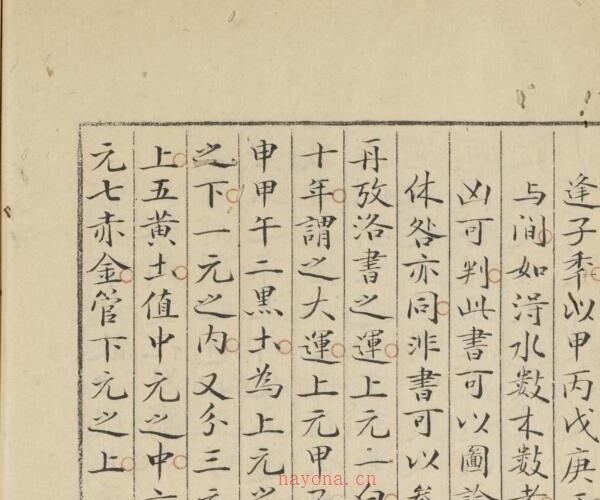 逢子季以甲丙戊庚
与澗如浔水数木数
凶可判此書可以圖
休咎亦同非書可以
再攷洛書之運上元一白
十年謂之大運上元甲子
申甲午二黒土為上元
之下一元之内又分三元
上五黄土值中元之中
元七赤金管下元之上
nayona.cn